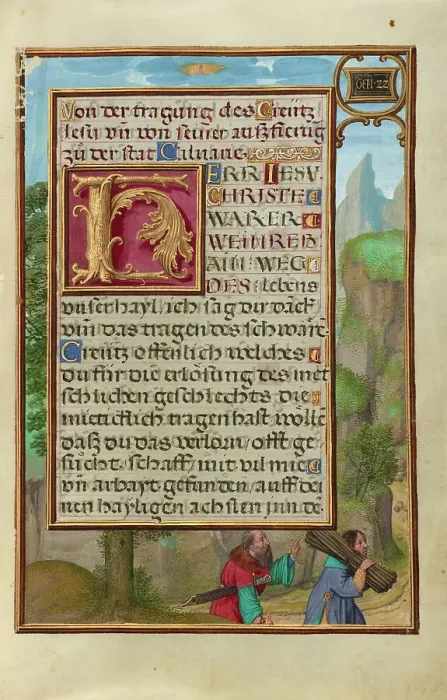 GEN·22
Von der tragung des Creütz
Jesu vn̄ von seiner außfierung
zu der stat Caluarie
HERR IESV
CHRISTE
WARER
WEINREB
AIN WEG
DES lebens
vnser hayl / ich sag dir danck
vm das tragen des schwären
Creütz offenlich welches
du für die erlösung des men
schlichen geschlechts die
mietickli̇ch tragen hast wölle
daß du das verlorn / offt ge
sucht / schaff / mit vil mie
vn̄ arbayt gefunden / auff dei
nen hayligen achslen jnn de